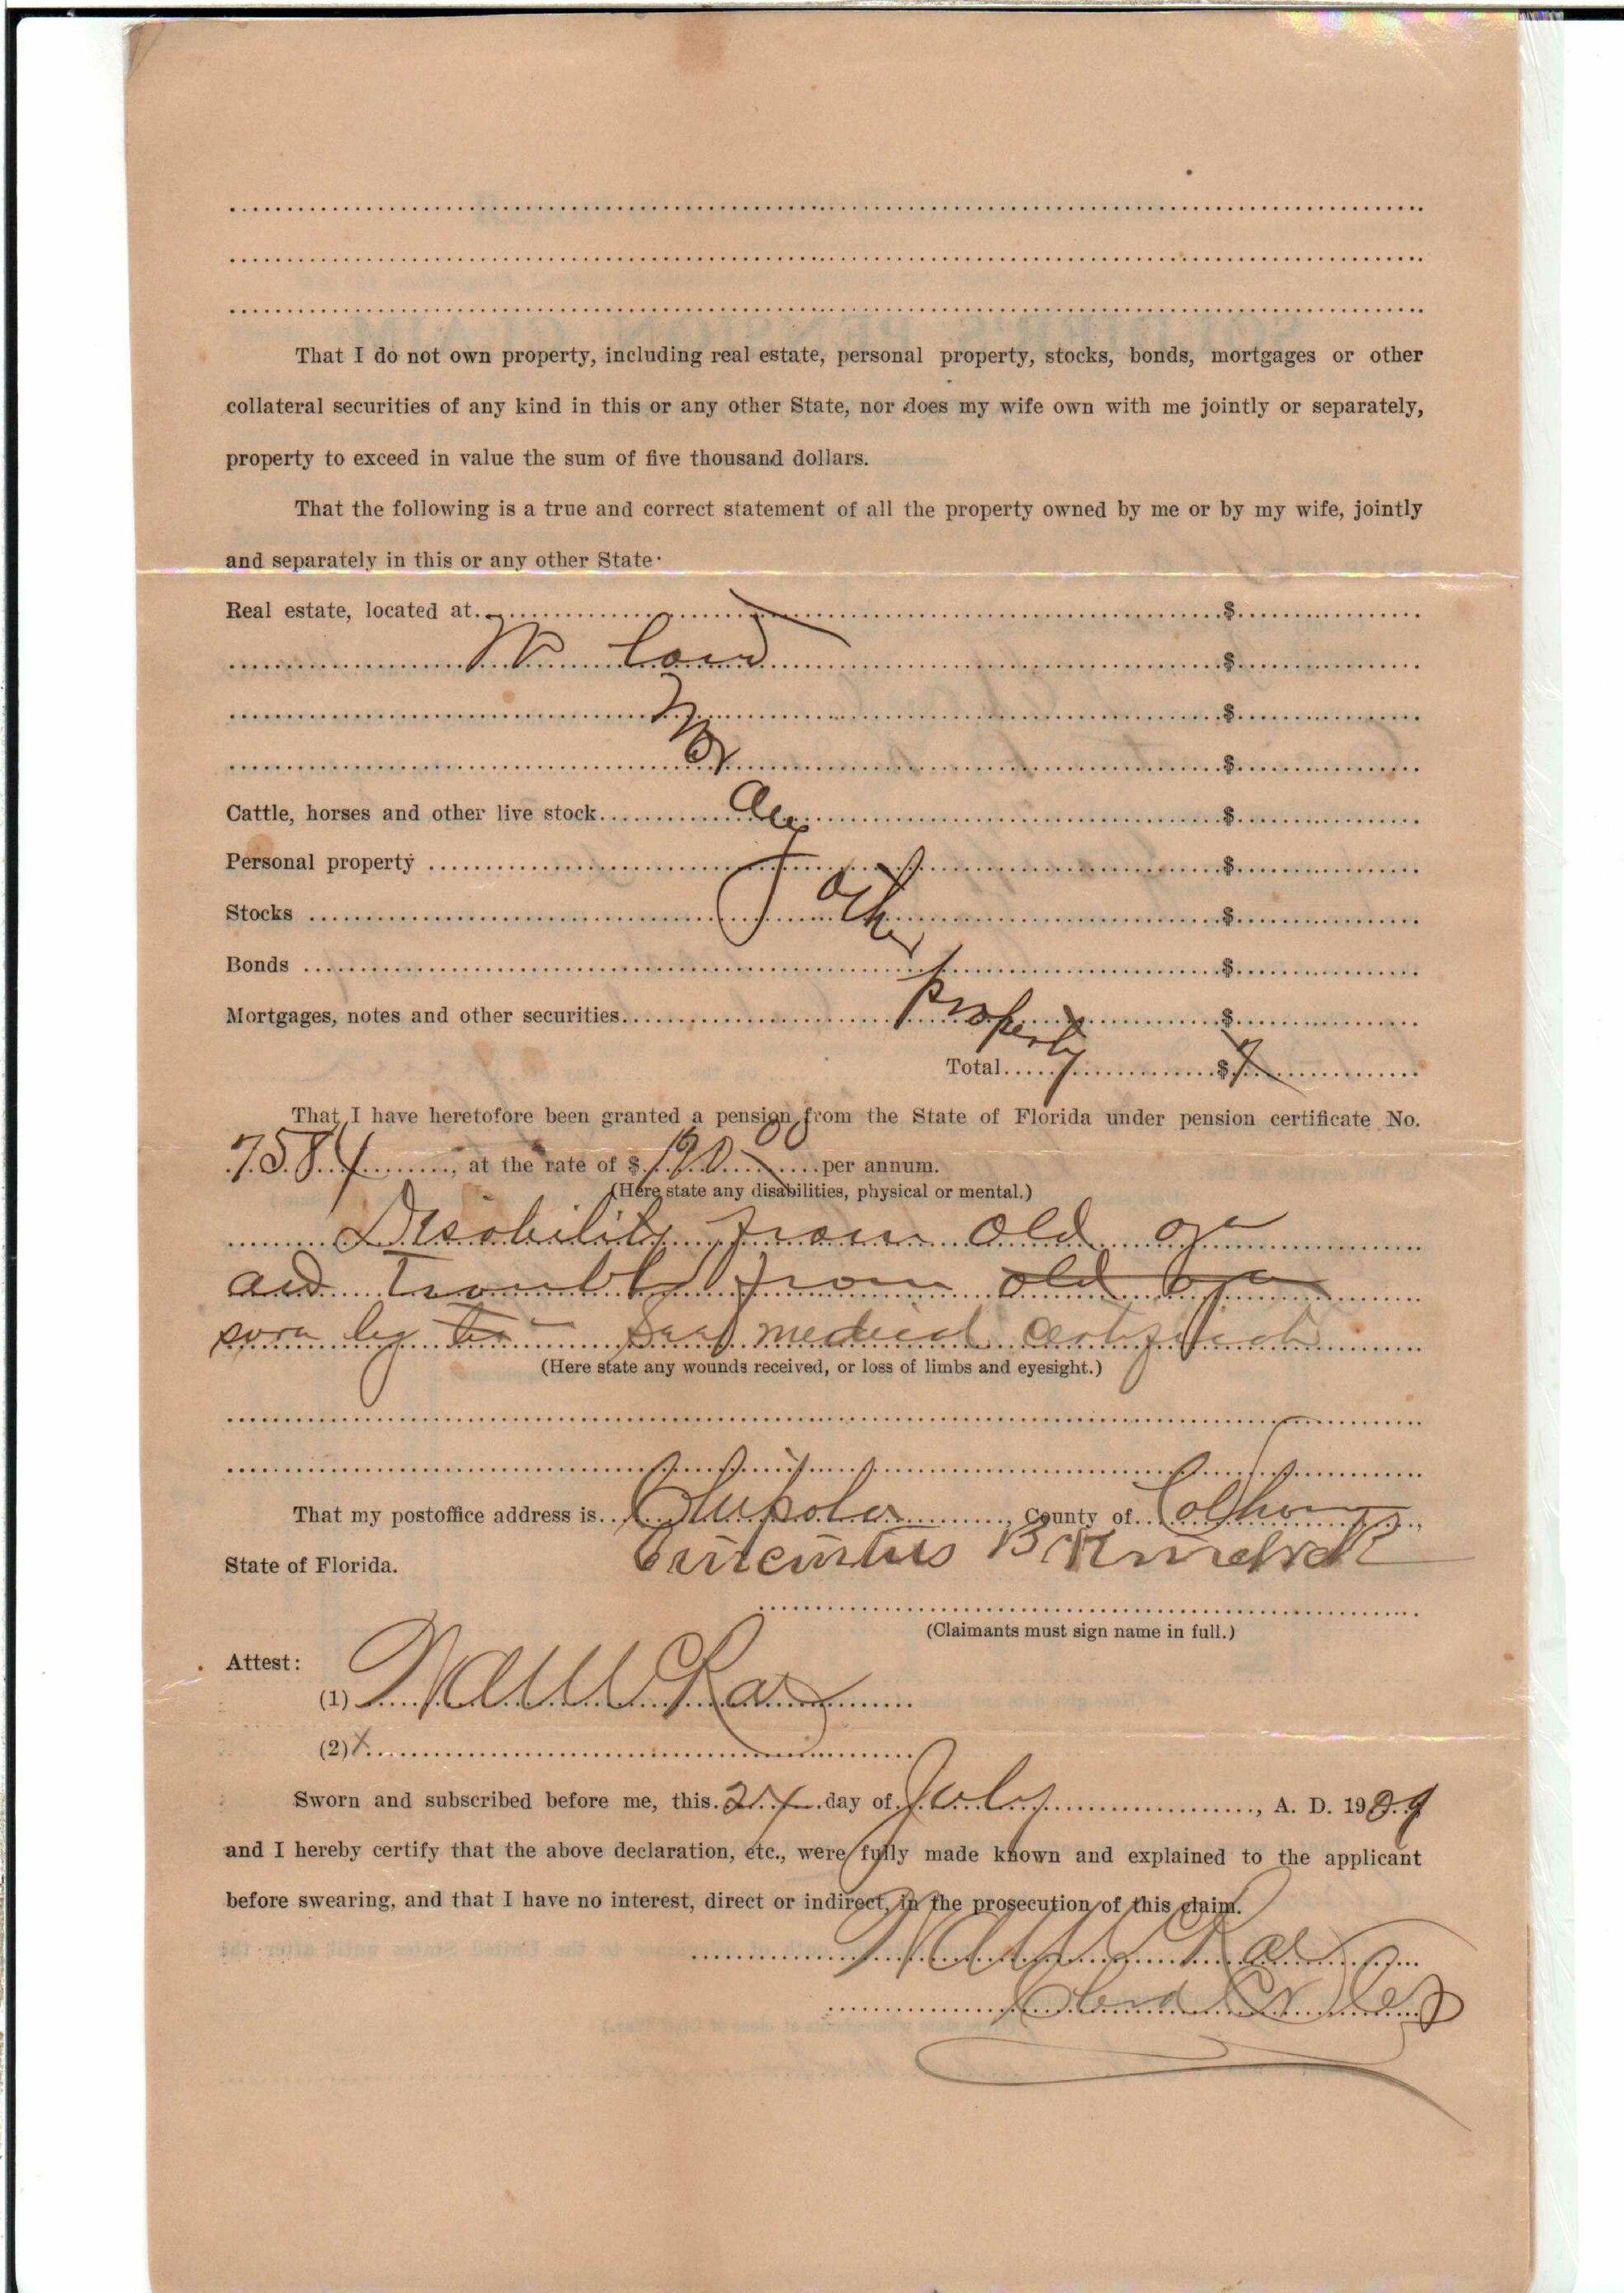 That I do not own property, including real estate, personal property, stocks, bonds, mortgages or other
collateral securities of any kind in this or any other State, nor does my wife own with me jointly or separately,
property to exceed in value the sum of five thousand dollars.
That the following is a true and correct statement of all the property owned by me or by my wife, jointly
and separately in this or any other State·
Real estate, located at. $
No land $
Nor $
$
Cattle, horses and other live stock any $
Personal property $
Stocks other $
Bonds $
Mortgages, notes and other securities property $
Total $
That I have heretofore been granted a pension from the State of Florida under pension certificate No.
7584, at the rate of $ per annum.
(Here state any disabilities, physical or mental.)
Disability from old age
and trouble from old age
sore leg See medical certificate
(Here state any wounds received, or loss of limbs and eyesight.)
That my postoffice address is Chipola, County of Calhoun,
State of Florida. B
(Claimants must sign name in full.)
Attest:
(1)
(2) x
Sworn and subscribed before me, this 24 day of July, A. D. 1909
and I hereby certify that the above declaration, etc., were fully made known and explained to the applicant
before swearing, and that I have no interest, direct or indirect, in the prosecution of this claim.